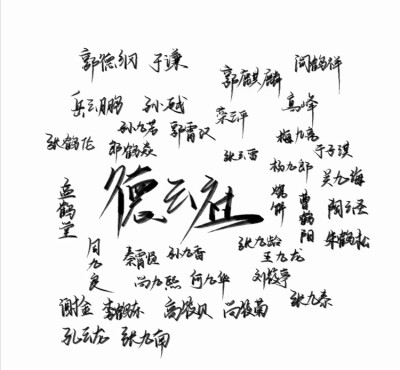 郭德纲 于谦
郭麒麟 阎鹤祥
岳云鹏 孙越 栾云平 高峰
张鹤伦 郎鹤焱 郭霄汉
孙九芳
张云雷 杨九郎
梅九亮 于子淇
孟鹤堂
周九良
德云社
烧饼
曹鹤阳
吴九海
陶云圣
朱鹤松
秦霄贤 孙九香 张九龄
王九龙
尚九熙 何九华 刘筱亭
谢金 李鹤东 高筱贝 尚筱菊 张九泰
孔云龙 张九南